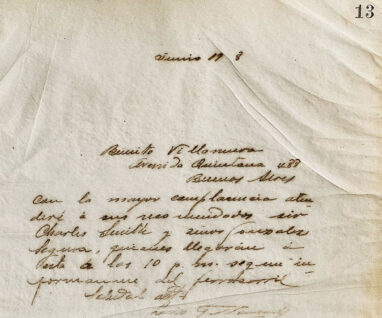 13
Junio 19 3
Benito Villanueva
Avenida Quintana 488
Buenos Aires
Con la mayor complacencia aten
deré á sus recomendados sir
Charles Smith y sinor Gonzalez
Segura, quienes llegarán á
esta á las 10 p. m. segun in
formaronme del ferrocarril